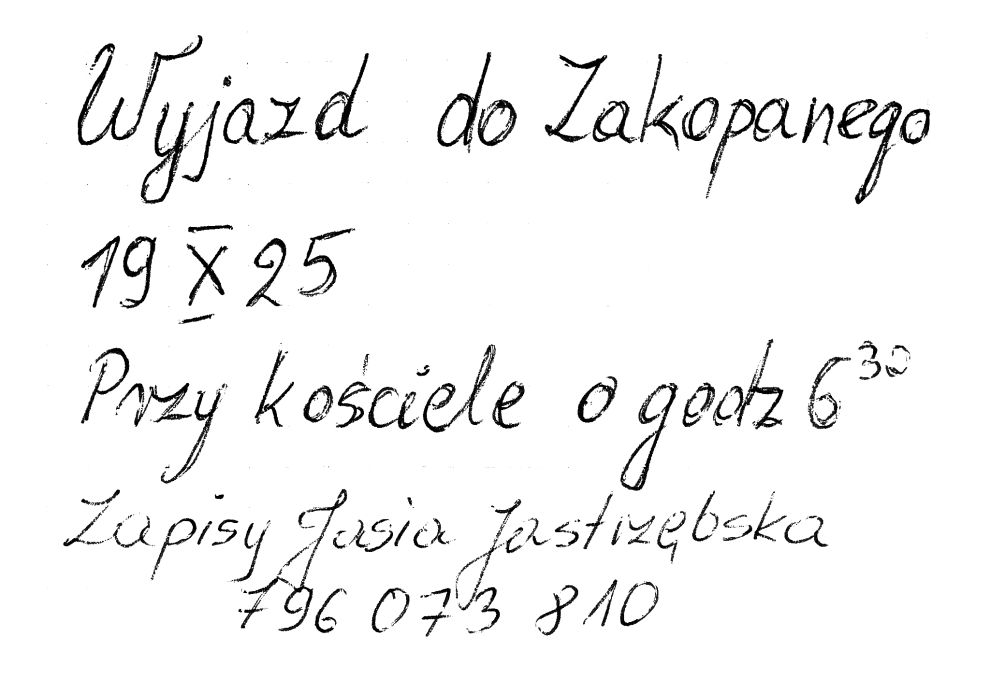 Wyjazd do Zakopanego
19 X 25
Przy kościele o godz 6³⁰
Zapisy Jasia Jastrzębska
796 073 810